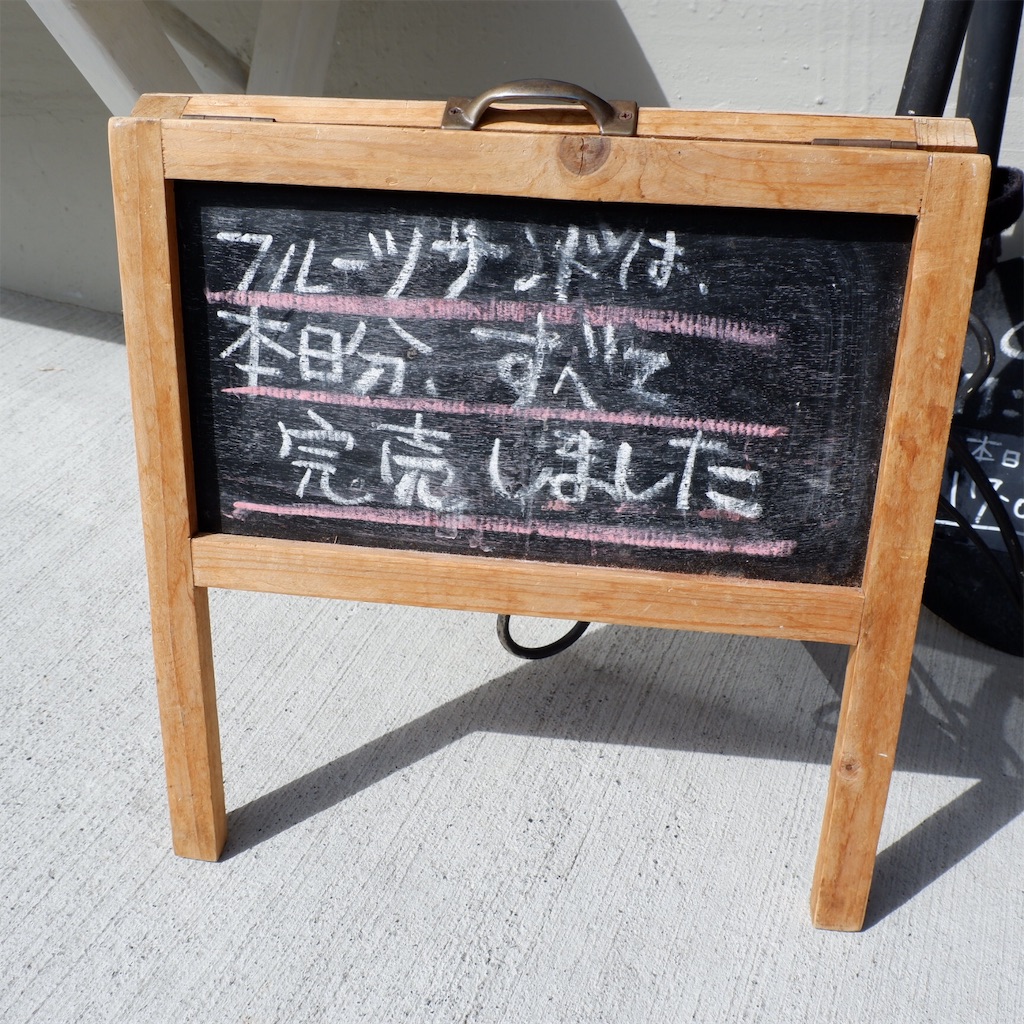 フルーツサンドは、
本日分、すべて
完売しました
本日